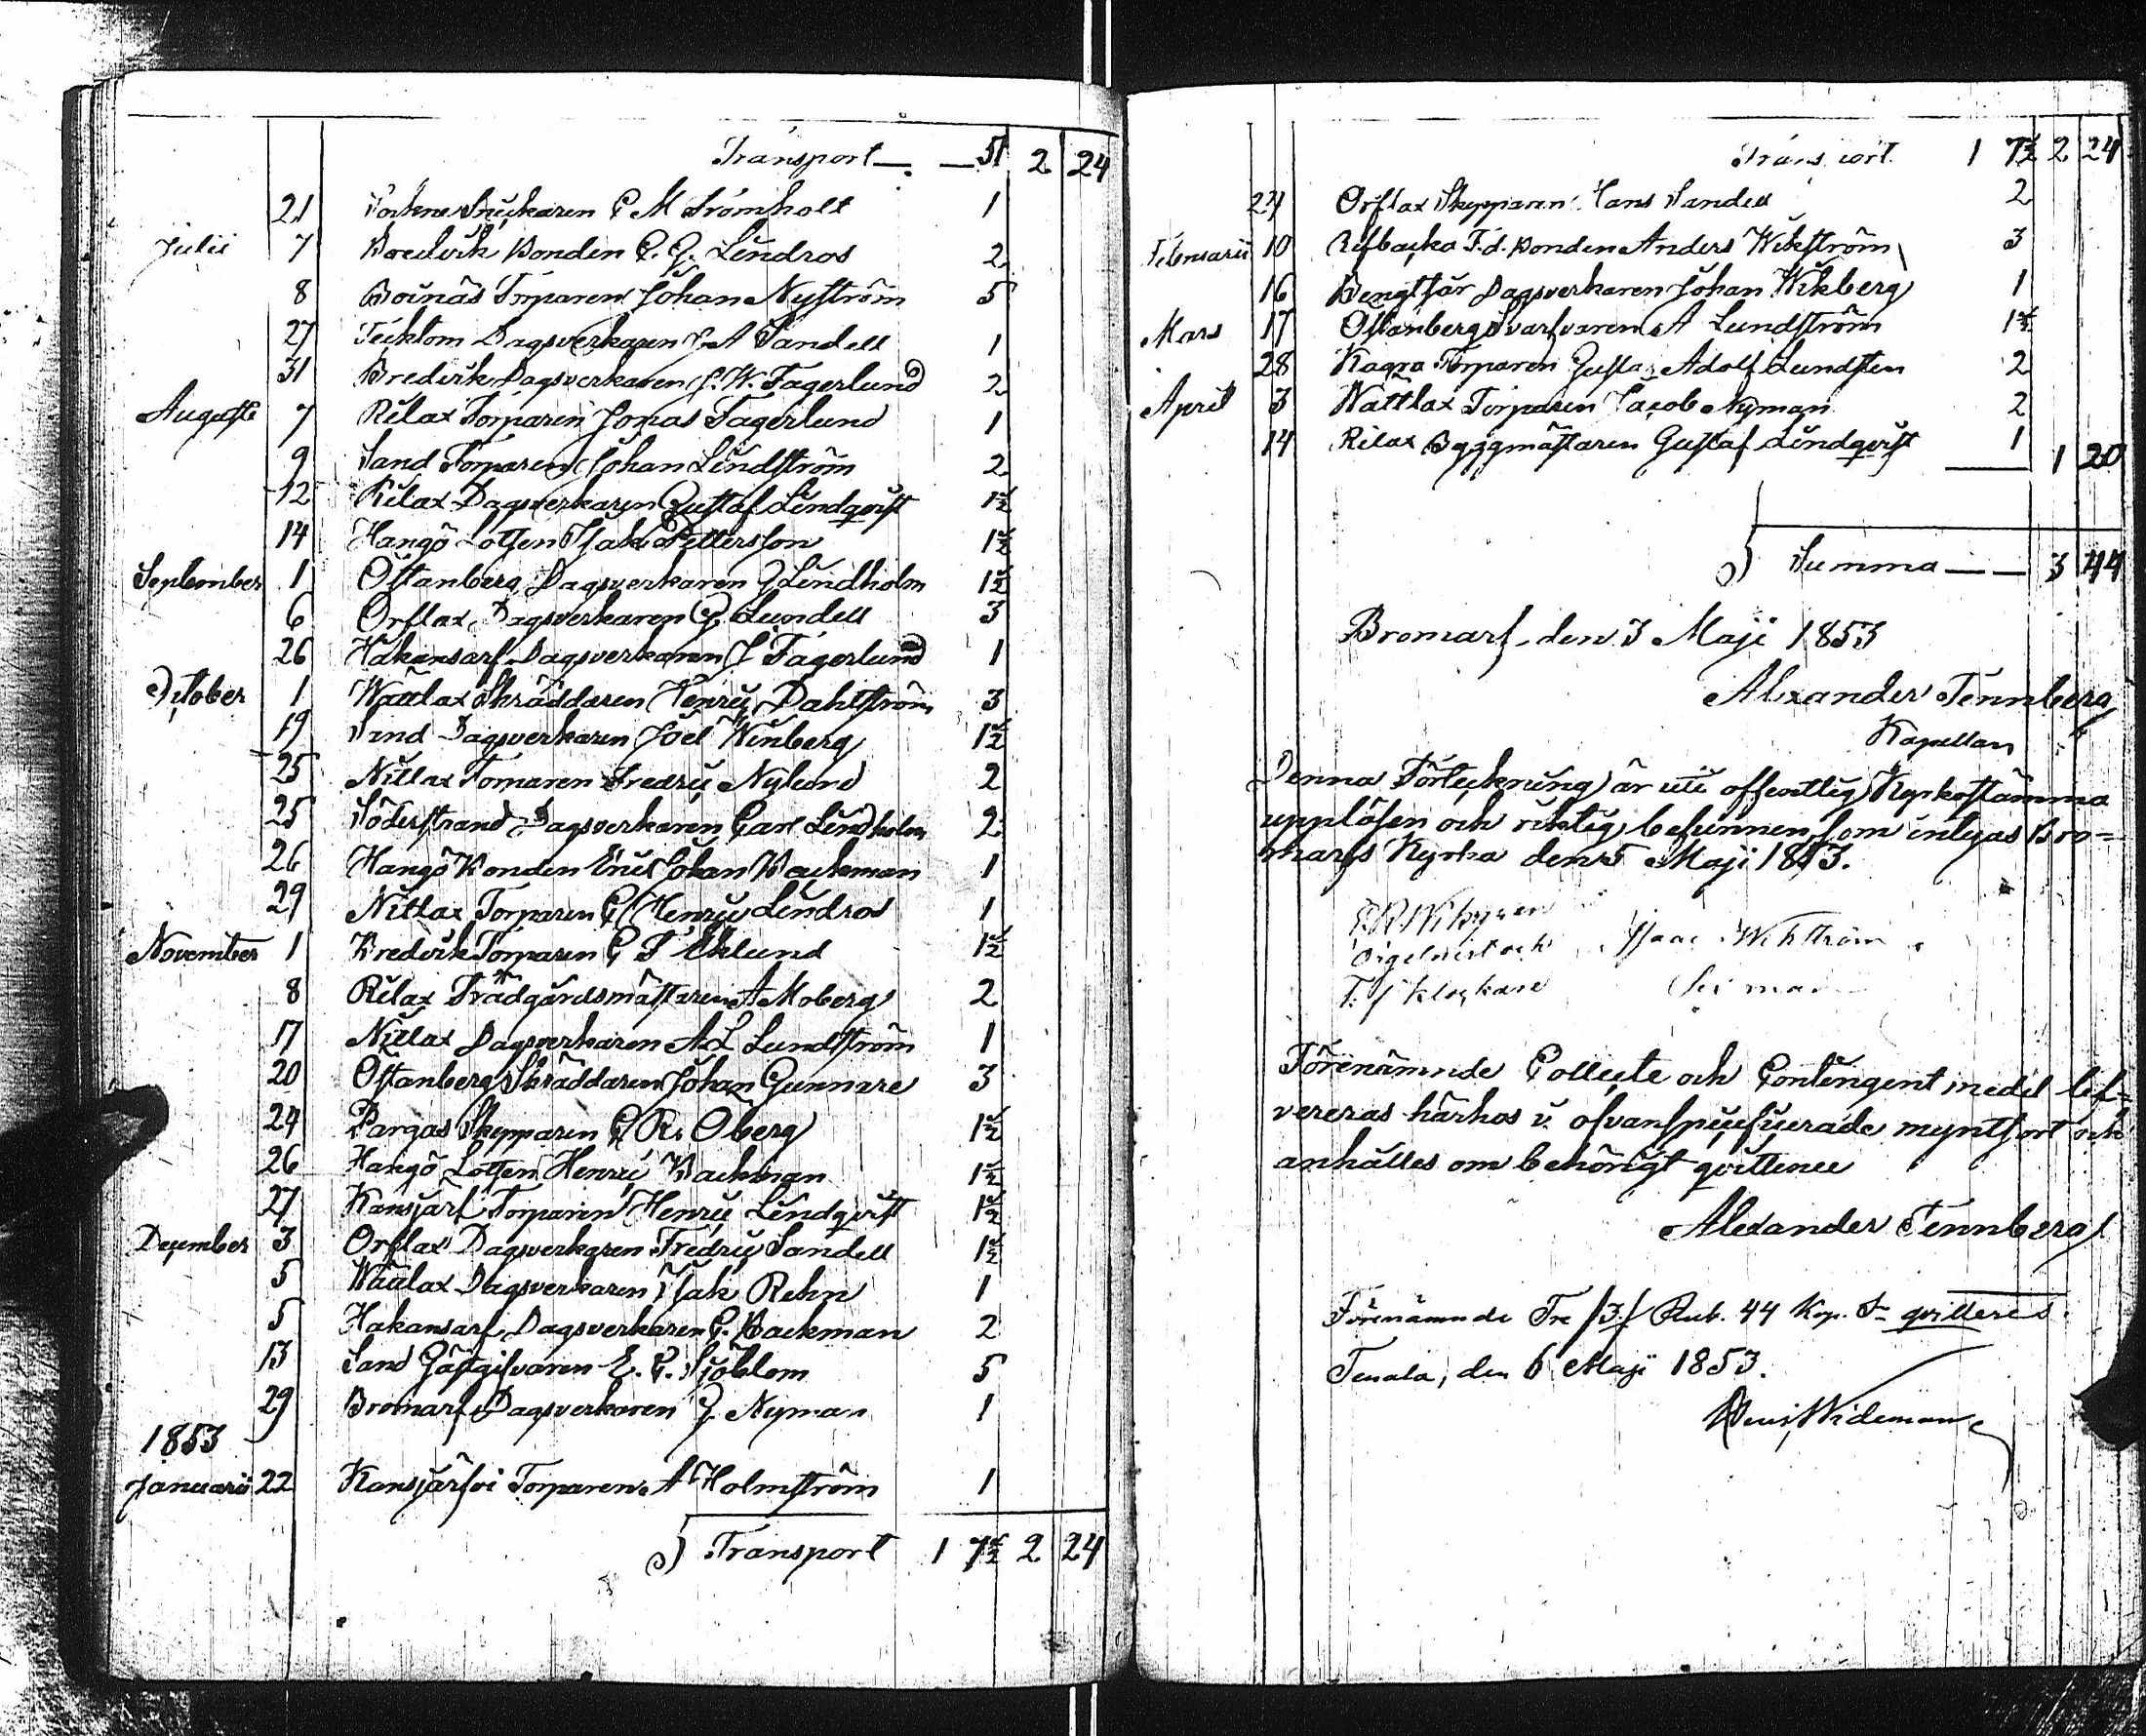 Transport — — 51 2 24
21 Snickaren C M Strömholt 1
Julii 7 Bredvik Bonden C. G. Lindros 2
8 Boinäs Torparen Johan Nyström 5
27 Tecktom Dagsverkaren J. A Sandell 1
31 Bredvik Dagsverkaren C. W. Fagerlund 2
Augusti 7 Rilax Torparen Jonas Fagerlund 1
9 Sand Torparen Johan Lindström 2
12 Rilax Dagsverkaren Gustaf Lindqvist 1½
14 Hangö Lotsen Isak Pettersson 1½
September 1 Östanberg Dagsverkaren G Lindholm 1½
6 Orslax Dagsverkaren G. Lundell 3
26 Håkansarf Dagsverkaren J Fagerlund 1
October 1 Wättlax Skräddaren Henric Dahlström 3
19 Sand Dagsverkaren Joel Winberg 1½
25 Nitlax Torparen Fredric Nylund 2
25 Söderstrand Dagsverkaren Carl Lindholm 2
26 Hangö Bonden Eric Johan Backman 1
29 Nitlax Torparen C Henric Lindros 1
November 1 Bredvik Torparen C F Eklund 1½
8 Rilax Trädgårdsmästaren A Moberg 2
17 Nitlax Dagsverkaren A L Lundström 1
20 Östanberg Skräddaren Johan Gunnare 3
24 Pargas Skepparen C R. Öberg 1½
26 Hangö Lotsen Henric Backman 1½
27 Kansjärf Torparen Henric Lindqvist 1½
December 3 Orslax Dagsverkaren Fredric Sandell 1½
5 Wättlax Dagsverkaren Isak Rehn 1
5 Håkansarf Dagsverkaren C. Backman 2
13 Sand Gästgifvaren E. C. Sjöblom 5
29 Bromarf Dagsverkaren G. Nyman 1
1853
Januarii 22 Kansjärfvi Torparen A Holmström 1
Transport 1 7½ 2 24
Transport 1 7½ 2 24
24 Orslax Skepparen Hans Sandell 2
Februarii 10 Refbacka F.d. Bonden Anders Wikström 3
16 Bengtsår Dagsverkaren Johan Wikberg 1
Mars 17 Östanberg Svarfvaren A Lundström 1½
28 Kagra Torparen Gustaf Adolf Lundsten 2
April 3 Wättlax Torparen Jacob Nyman 2
14 Rilax Byggmästaren Gustaf Lindqvist 1 — 1 20
Summa — — 3 44
Bromarf, den 3 Maji 1853
Alexander Tennberg
Kapellan
Denna Förteckning är uti offentlig Kyrkostämma
uppläsen och riktig befunnen, som intygas Bro=
marfs Kyrka den 5 Maji 1853.
Orgelnist och Isaac Wikström
T. f klockare
Förenämnde Collecte och Contingent medel lef=
vereras härhos i ofvanspecificerade myntsort och
anhålles om behörigt qvittence
Alexander Tennberg
Förenämnde Tre /3/ Rub. 44 Kop. Sr qvitteras.
Tenala, den 6 Maji 1853.
Wideman